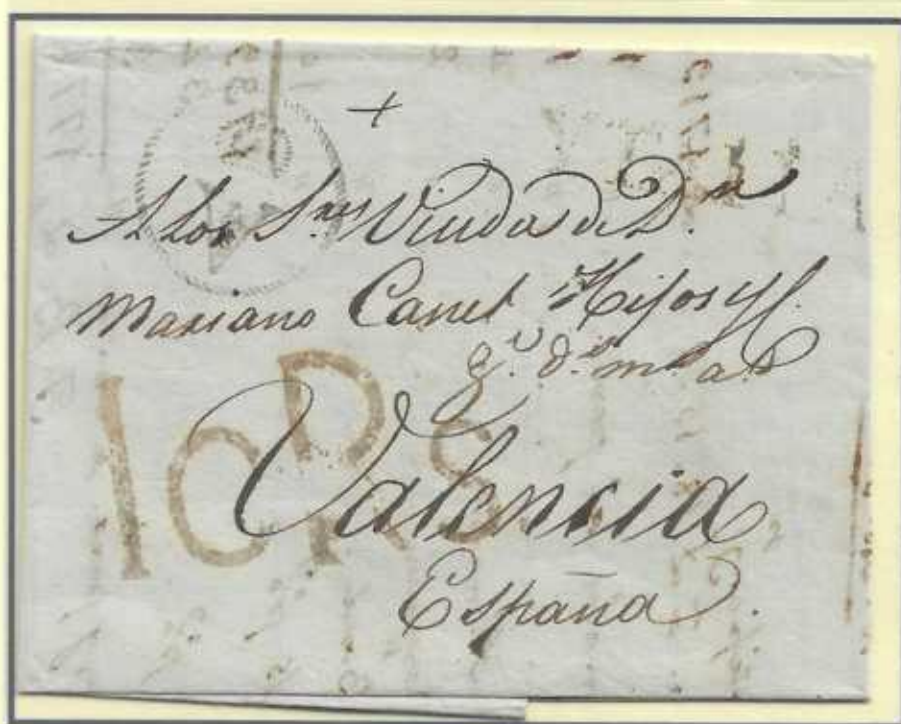 +
A los S.res Viuda de D.n
Mariano Canet Hijos y C.
g.e D.s m.s a.s
10 RS
Valencia
España.